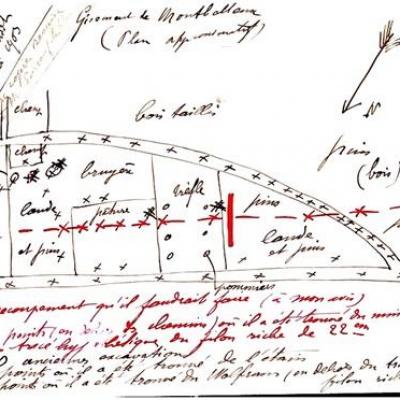 1903
Gisement de Montbelleux
(Plan approximatif)
N
bois taillis
champ
champ
pins
(bois)
bruyère
trèfle
lande
et pins
pature
pins
lande
et pins
pommiers
recoupement qu'il faudrait faire (à mon avis)
points (en dehors du chemin) où il a été trouvé du min
tracé hypothétique du filon riche de 22 cm
O anciennes excavations
point où il a été trouvé de l'étain
points où il a été trouvé du Wolfram (en dehors du tr
filon riche